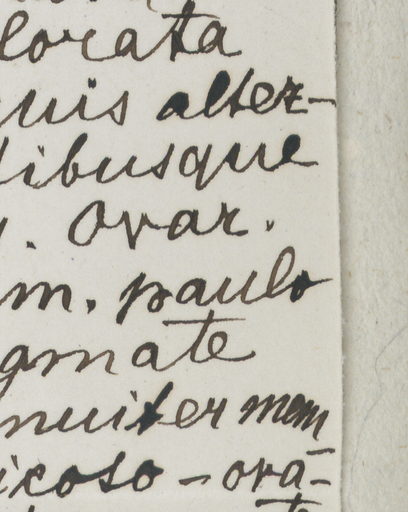 lorata
uis alter-
libusque
. Ovar.
m. paulo
gmate
nuiter mem
icoso - ova-